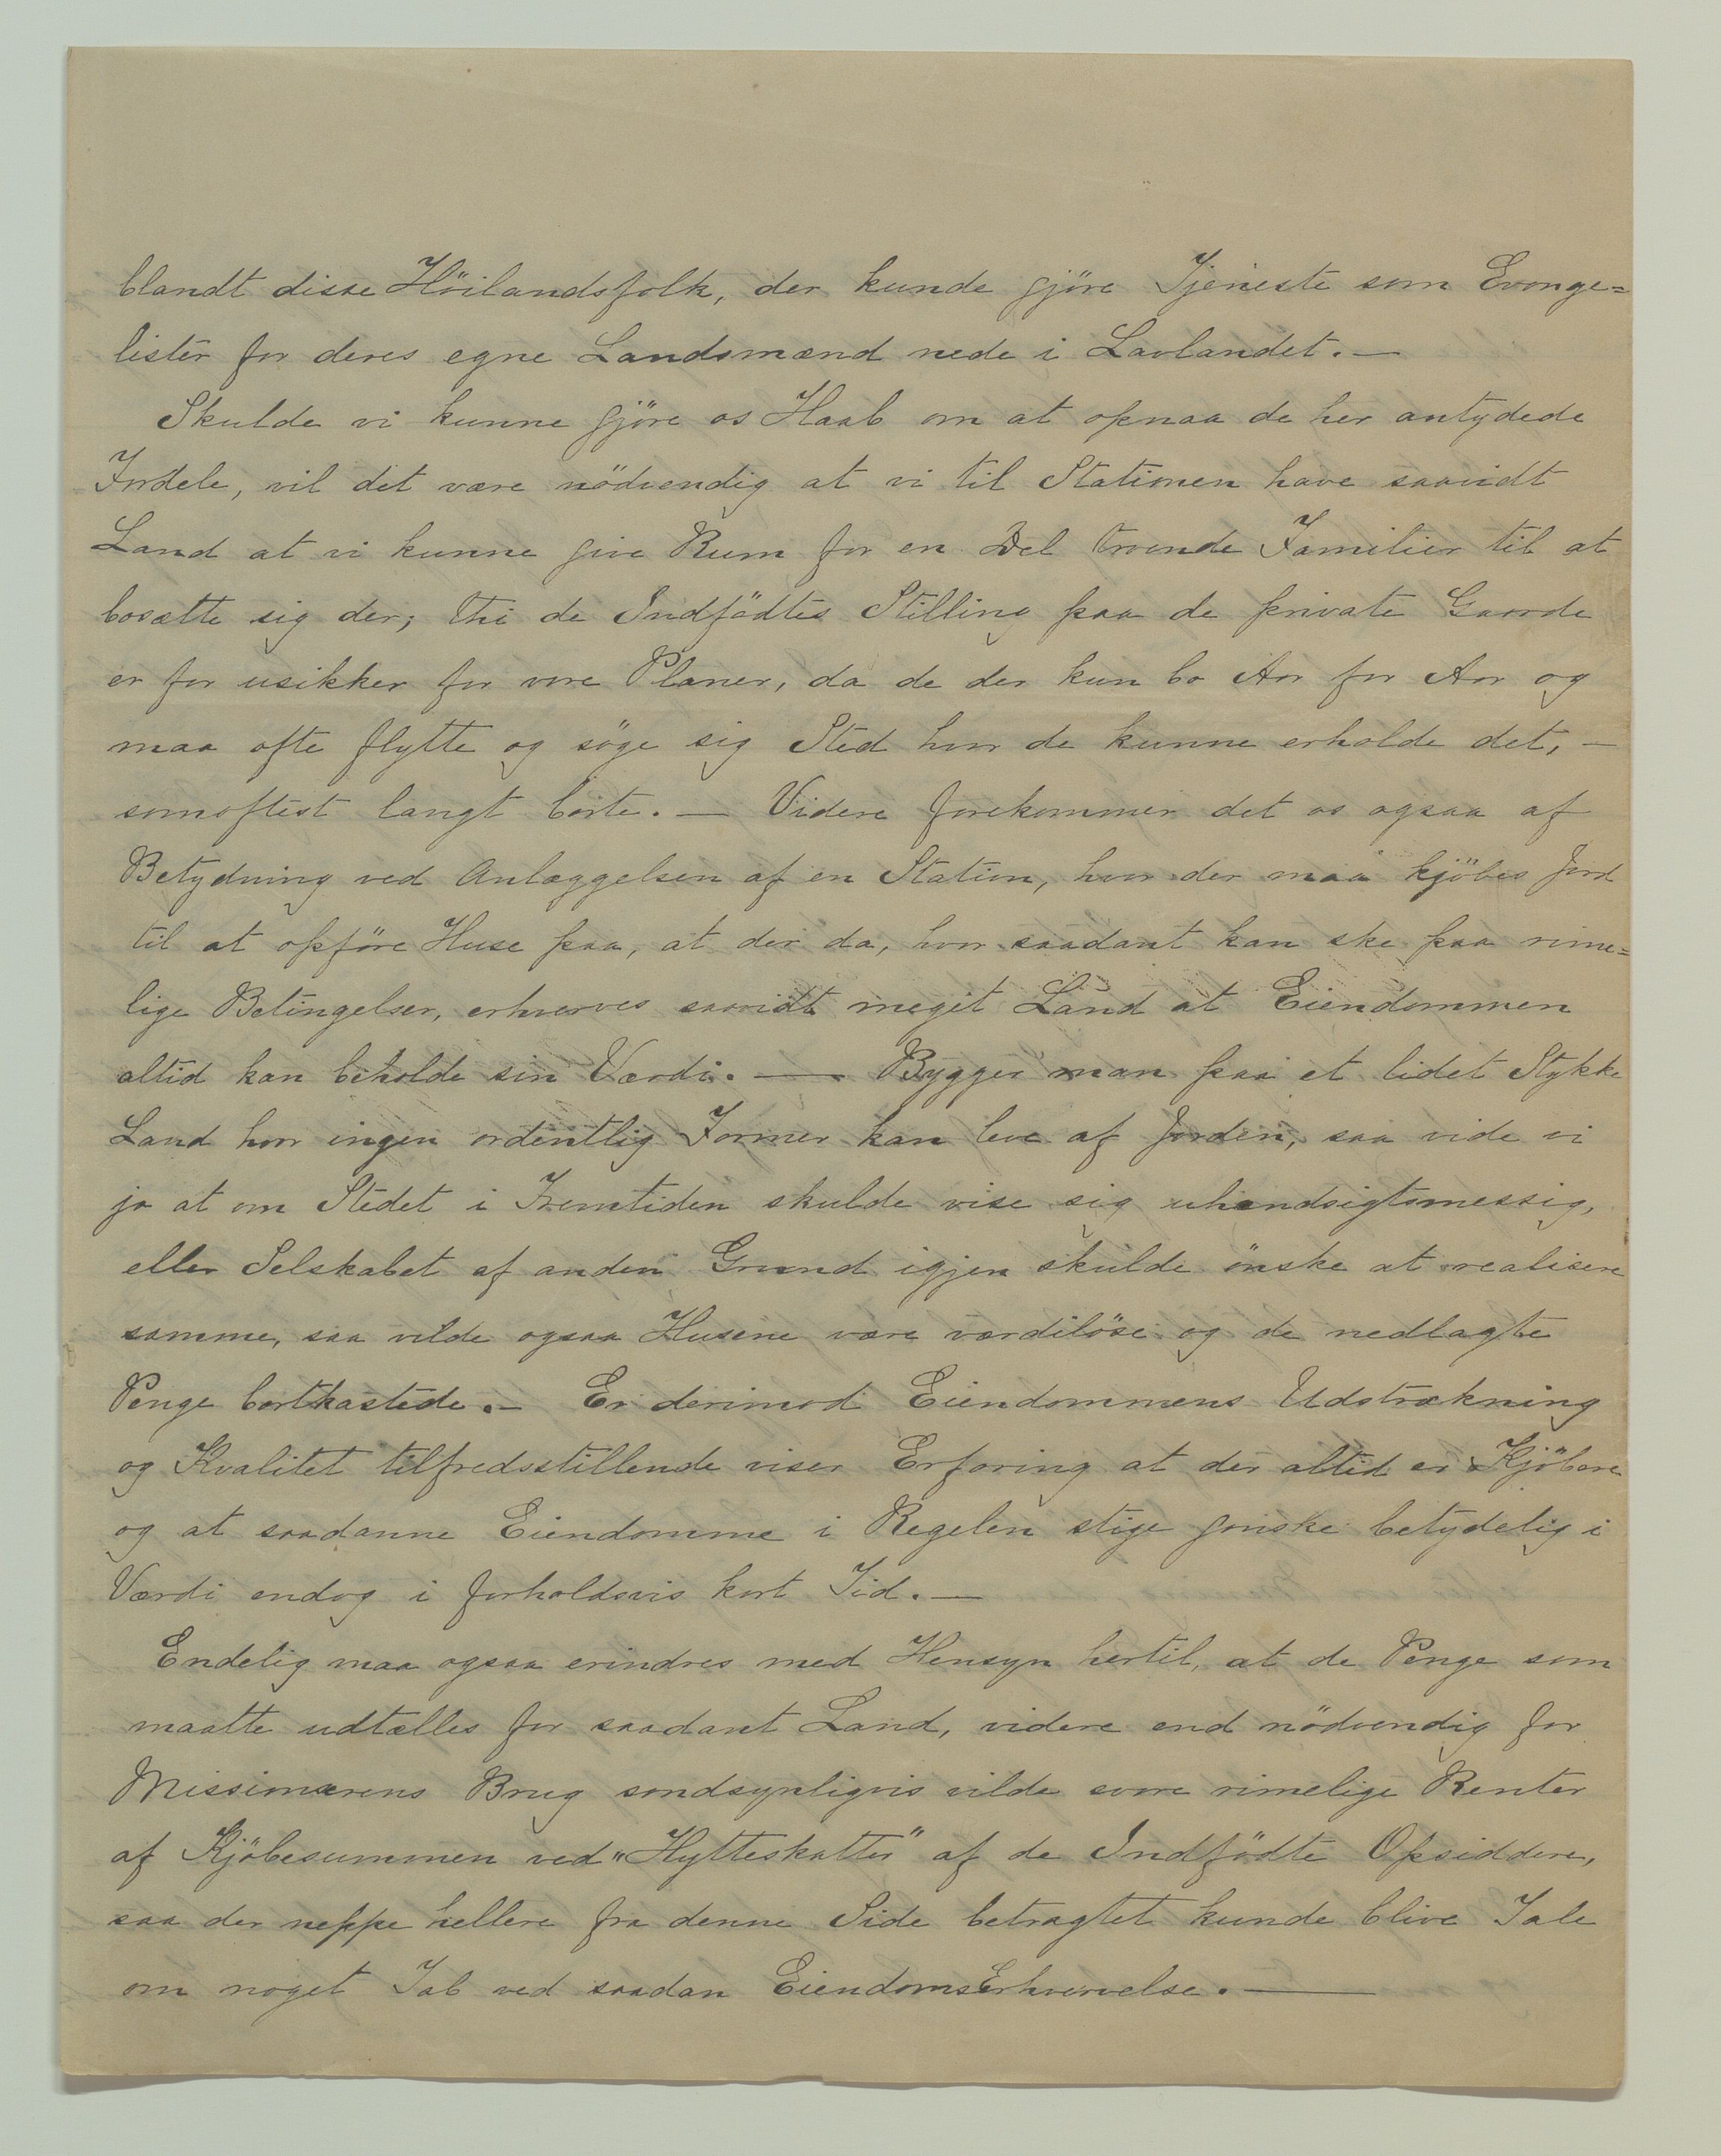 blandt disse Höilandsfolk, der kunde gjöre Tjeneste som Evange=
lister for deres egne Landsmænd nede i Lavlandet. —
Skulde vi kunne gjöre os Haab om at opnaa de her antydede
Fordele, vil det være nödvendig at vi til Stationen have saavidt
Land at vi kunne give Rum for en Del troende Familier til at
bosætte sig der; thi de Indfödtes Stilling paa de private Gaarde
er for usikker for vore Planer, da de der kun bo Aar for Aar og
maa ofte flytte og söge sig Sted hvor de kunne erholde det, —
somoftest langt borte. — Videre forekommer det os ogsaa af
Betydning ved Anlæggelsen af en Station, hvor der maa kjöbes Jord
til at opföre Huse paa, at der da, hvor saadant kan ske paa rime=
lige Betingelser, erhverves saavidt meget Land at Eiendommen
altid kan beholde sin Værdi. — Bygger man paa et lidet Stykke
Land hvor ingen ordentlig Farmer kan leve af Jorden, saa vide vi
jo at om Stedet i Fremtiden skulde vise sig uhendsigtsmessig,
eller Selskabet af anden Grund igjen skulde önske at realisere
samme, saa vilde ogsaa Husene være værdilöse og de nedlagte
Penge bortkastede. — Er derimod Eiendommens Udstrækning
og Kvalitet tilfredsstillende viser Erfaring at der altid er Kjöbere
og at saadanne Eiendomme i Regelen stige ganske betydelig i
Værdi endog i forholdsvis kort Tid. —
Endelig maa ogsaa erindres med Hensyn hertil, at de Penge som
maatte udtælles for saadant Land, videre end nödvendig for
Missionærens Brug sandsynligvis vilde svare rimelige Renter
af Kjöbesummen ved "Hytteskatter" af de Indfödte Opsiddere,
saa der neppe hellere fra denne Side betragtet kunde blive Tale
om noget Tab ved saadan EiendomsErhvervelse. —